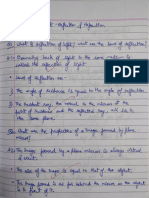 - Reflection & Refraction
Q1 What is reflection of light? What are the laws of reflection?
Bouncing back of light in the same medium is
called the reflection of light.
Laws of Reflection are -
The angle of incidence is equal to the angle of reflection.
The incident ray, the normal to the mirror at the
point of incidence and the reflected ray, all lie in
the same plane.
of a image formed by a plane
mirror?
The image formed by a plane mirror is always virtual
& erect.
The size of the image is equal to that of the object.
The image formed is as far behind the mirror as the object
is in front of it.